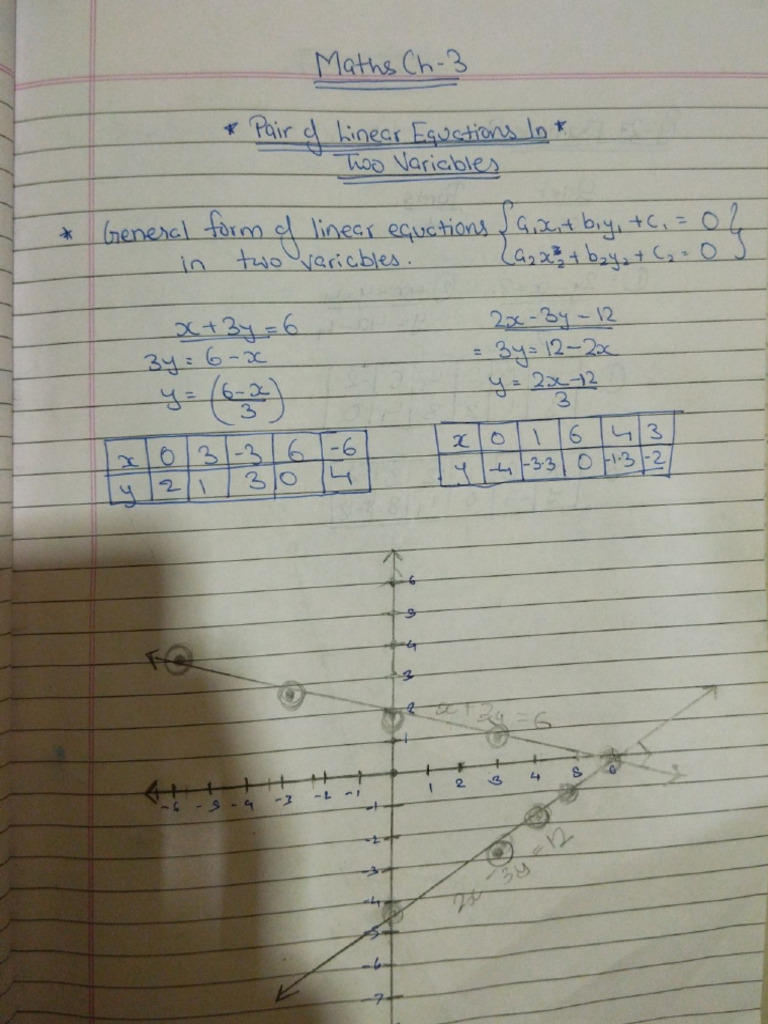 Maths Ch-3
* Pair of Linear Equations In *
Two Variables
* General form of linear equations {a₁x₁ + b₁y₁ + c₁ = 0}
in two variables. {a₂x₂ + b₂y₂ + c₂ = 0}
x + 3y = 6
3y = 6 - x
y = (6-x/3)
2x - 3y - 12
= 3y = 12 - 2x
y = 2x-12/3
x 0 3 -3 6 -6
y 2 1 3 0 4
x 0 1 6 4 3
y -4 -3.3 0 -1.3 -2
6
5
4
3
2
x + 3y = 6
1
-6 -5 -4 -3 -2 -1 1 2 3 4 5 6
-1
-2
-3
2x - 3y = 12
-4
-5
-6
-7